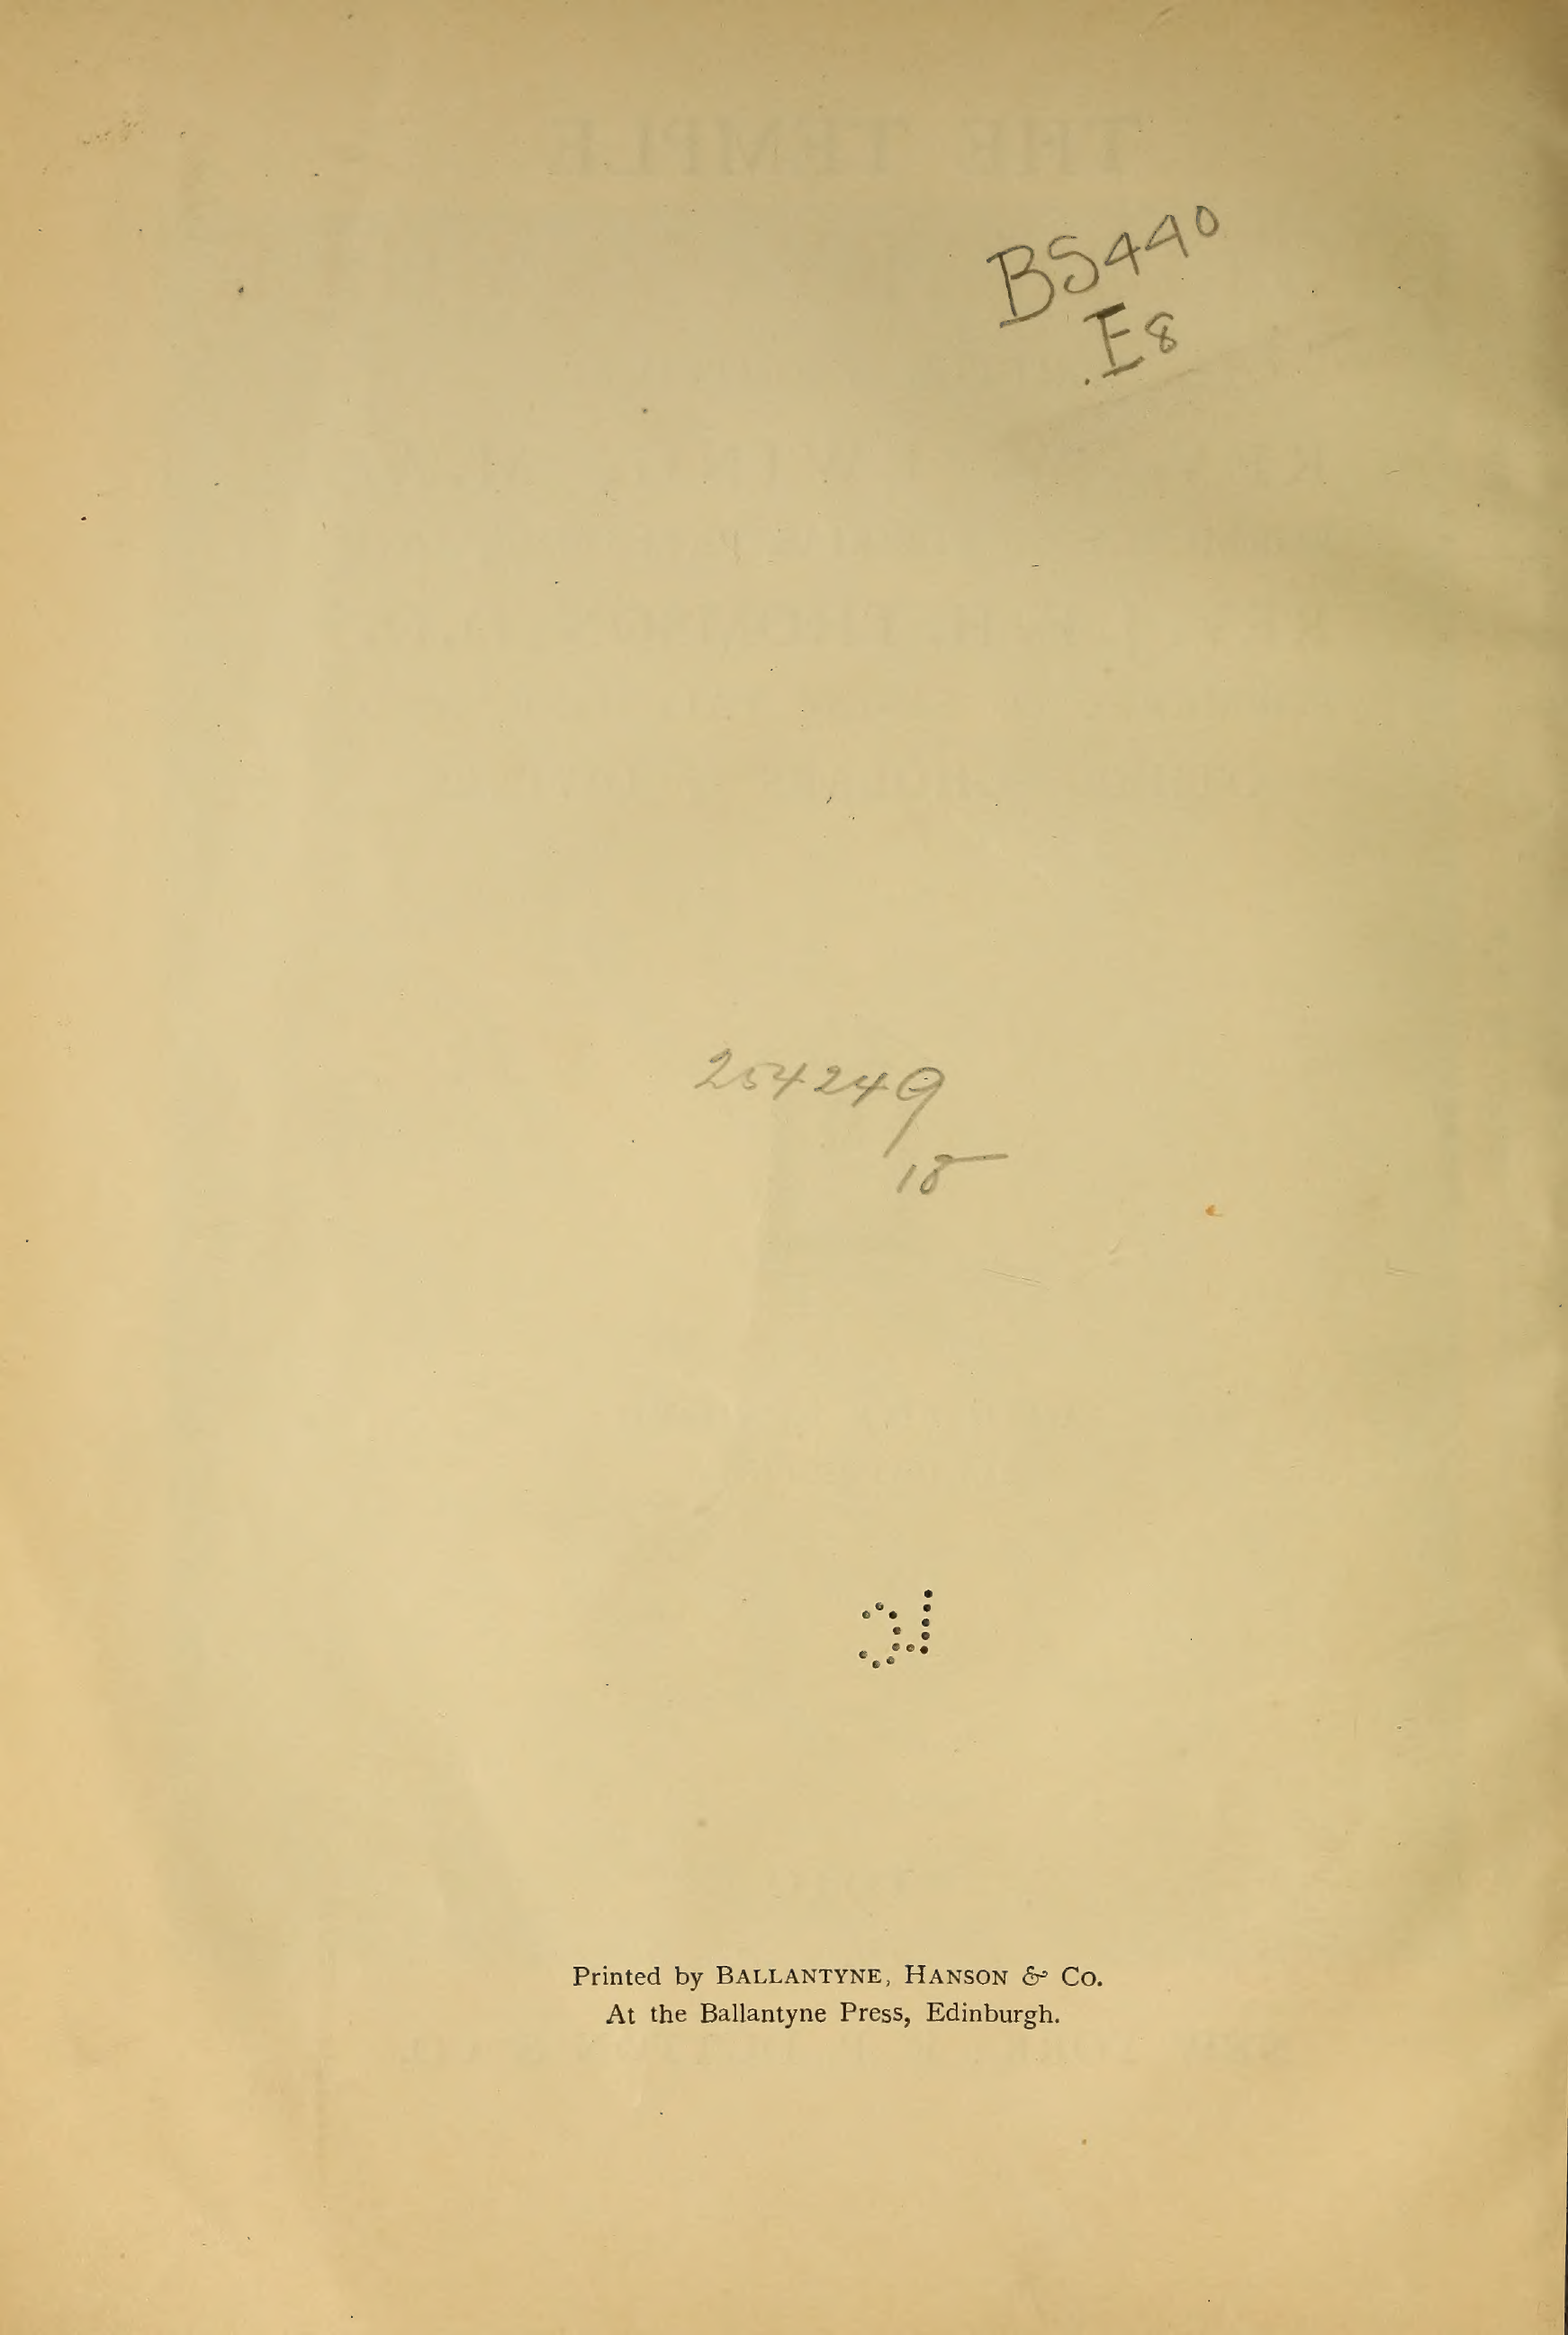 BS440
.E8
254249
18
Printed by BALLANTYNE, HANSON & Co.
At the Ballantyne Press, Edinburgh.